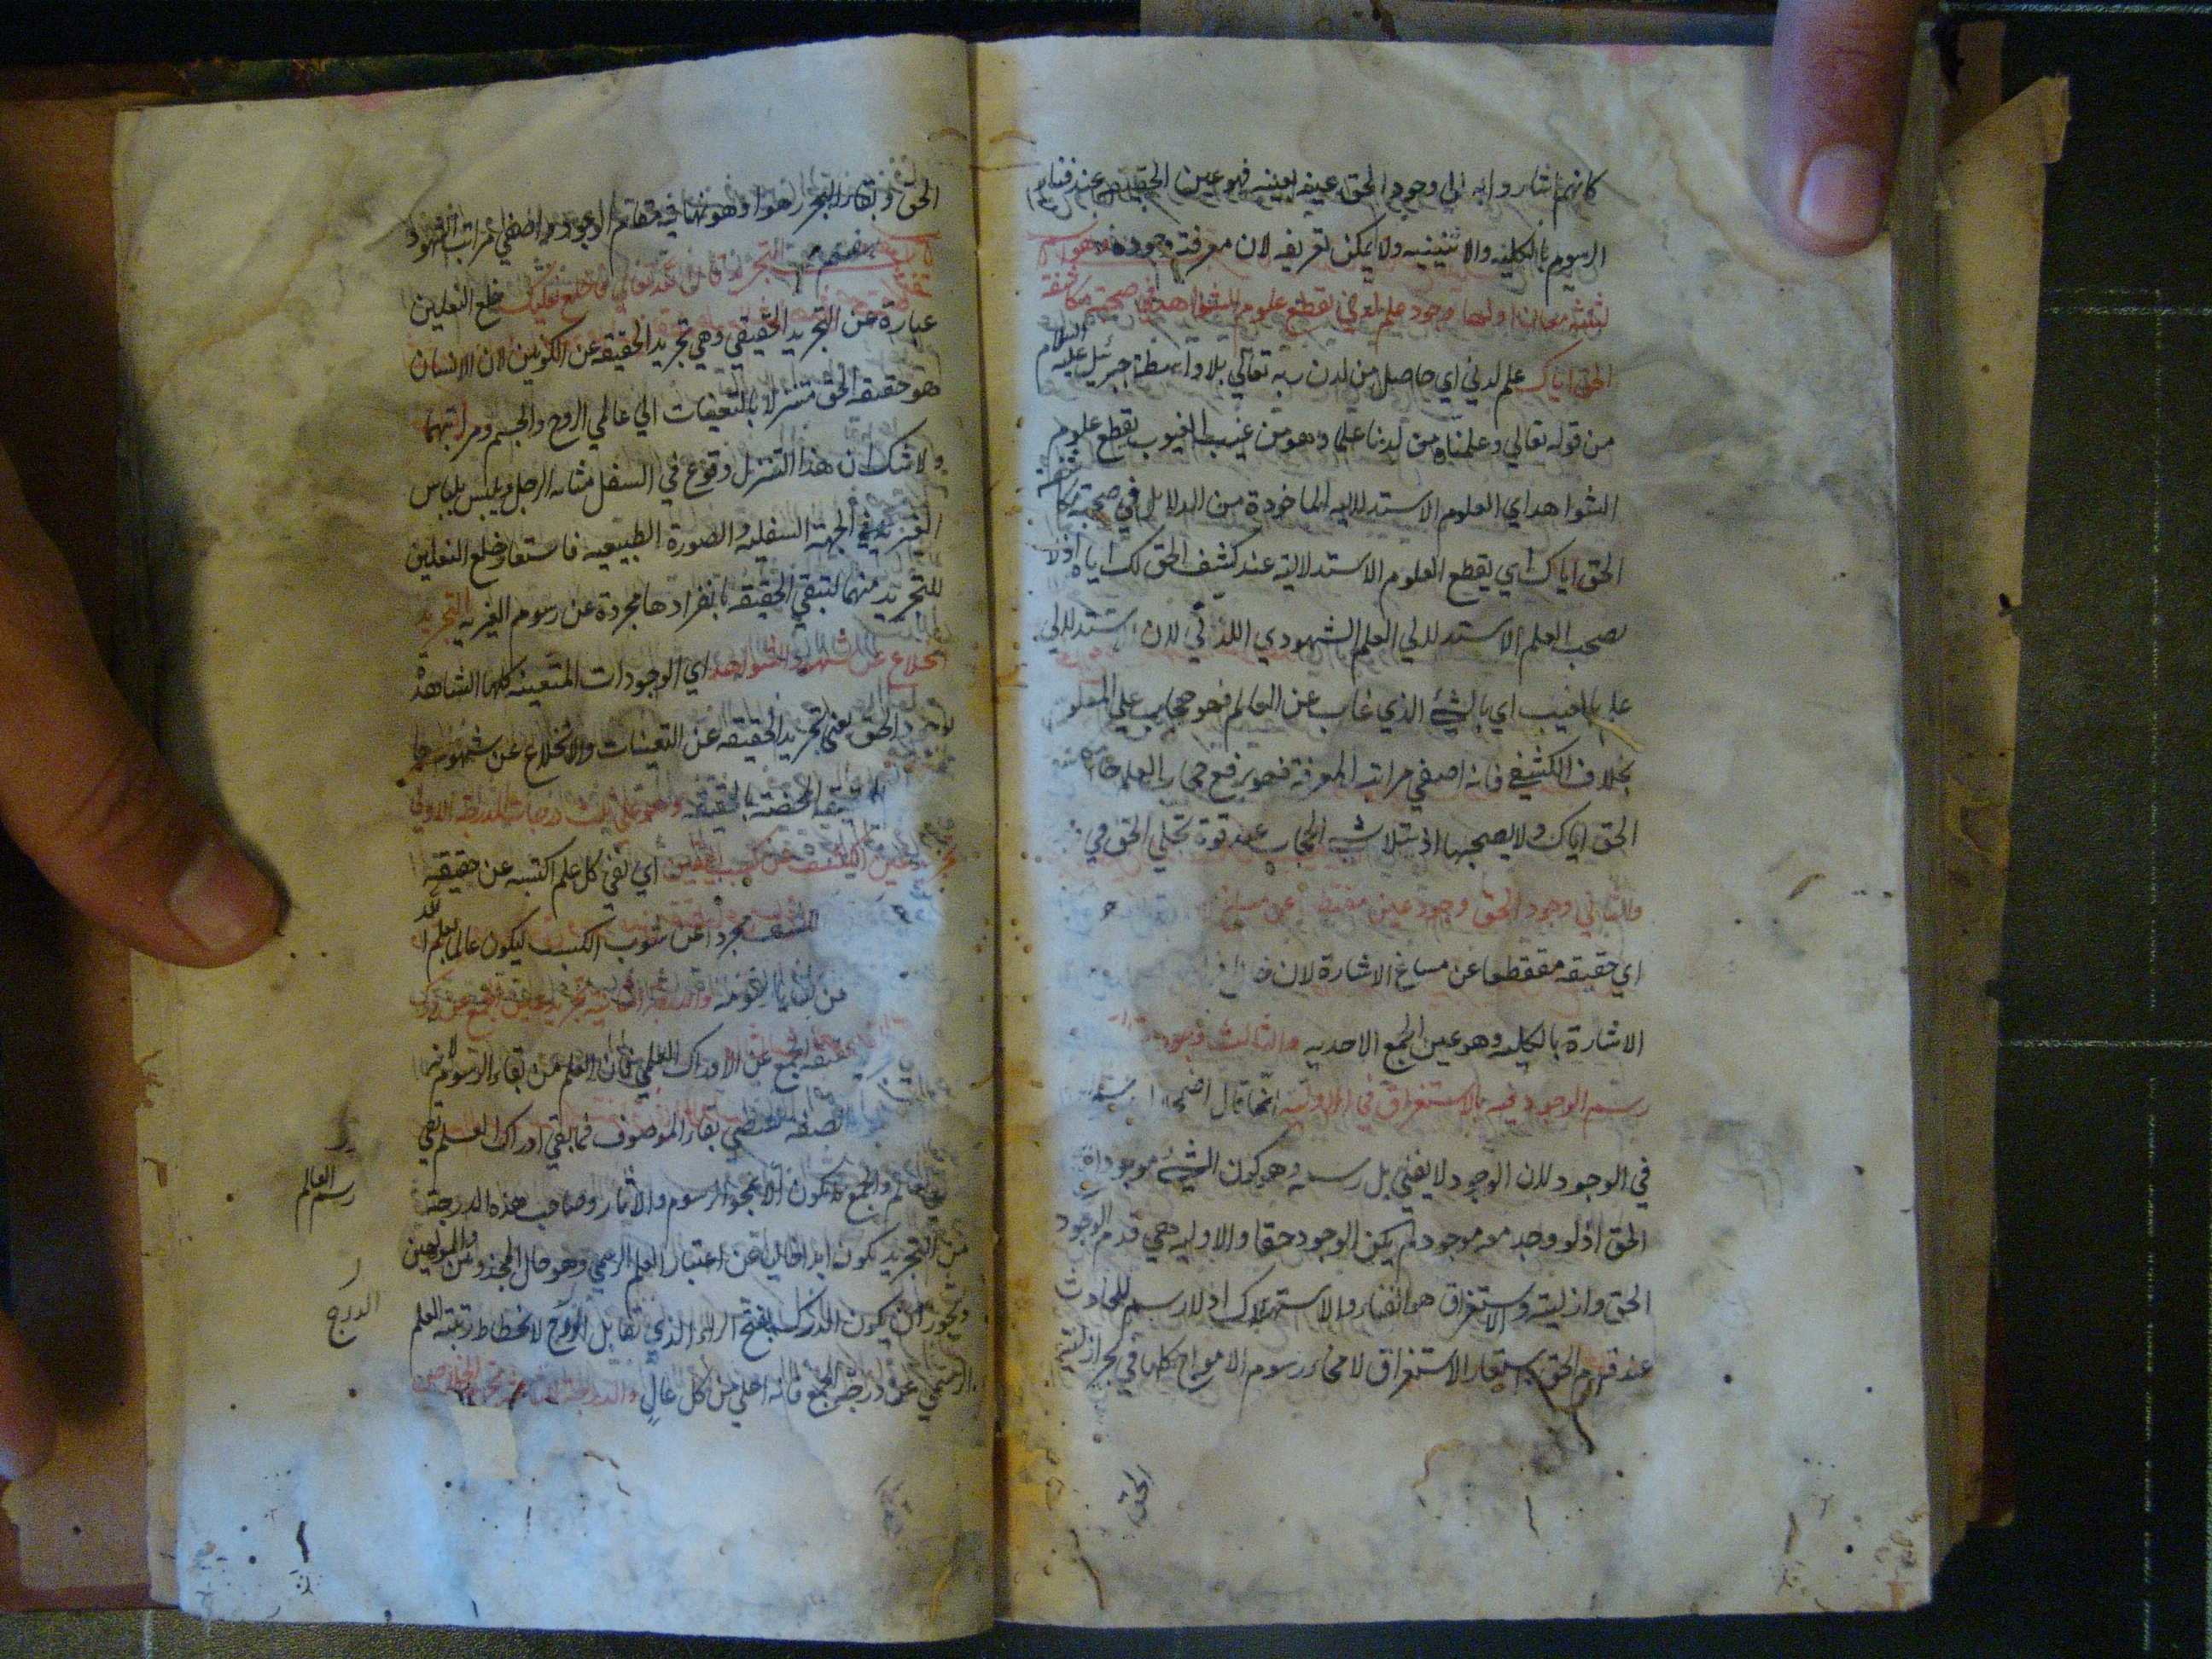 كانهم اشاروا به الي وجود الحق عينه بعينه فهو عين الحقيقة عند فناء
الرسوم بالكليه والاثنينيه ولا يمكن تعريفه لان معرفته وجوده وهو اسم
لثلثة معان اولها وجود علم لدني يقطع علوم الشواهد في صحة مكاشفة
الحق اياك علم لدني اي حاصل من لدن ربه تعالي بلا واسطة جبرئيل عليه السلام
من قوله تعالي وعلمناه من لدنا علما وهو من غيب الغيوب يقطع علوم
الشواهد اي العلوم الاستدلاليه الماخودة من الدلايل في صحبة مكاشفة
الحق اياك اي يقطع العلوم الاستدلالية عند كشف الحق لك اياه اذ لا
يصحب العلم الاستدلالي العلم الشهودي اللدني لان استدلالي
علم بالغيب اي بالشيء الذي غاب عن العالم فهو حجاب علي المعلو
بخلاف الكشفي فانه اصفي مراتب المعرفة فهو يرفع حجاب العلم
الحق اياك ولا يصحبها اذ تلاشي الحجاب عند قوة تجلي الحق في
والثاني وجود الحق وجود عين مقتطعا عن مساغ
اي حقيقه مقتطعا عن مساغ الاشارة لان
الاشارة بالكليه وهو عين الجمع الاحديه والثالث وجود
رسم الوجود فيه بالاستغراق في الاولية انما قال اضمحلال رسم
في الوجود لان الوجود لا يفني بل رسمه وهو كون الشيء موجودا
الحق اذ لو وجد معه موجود لم يكن الوجود حقا والاوليه هي قدم الوجود
الحق وازليته والاستغراق هو الفناء والاستهلاك اذ لا رسم للحادث
عند قدم الحق استعار الاستغراق لامحاء رسوم الامواج كلها في بحر ازلية
الحق
الحق وبقاء البحر رهوا وهو نهاية مقام الوجود واصفي مراتب الشهود
باب التجريد قال الله تعالي فاخلع نعليك خلع النعلين
عبارة عن التجريد الحقيقي وهي تجريد الحقيقه عن الكونين لان الانسان
هو حقيقه الحق متنزلا بالتعينات الي عالمي الروح والجسم ومراتبهما
ولا شك ان هذا التنزل وقوع في السفل مثابه الرجل يلبس بلباس
الغيريه في الجهة السفليه والصورة الطبيعيه فاستعار خلع النعلين
للتجريد منهما لتبقي الحقيقه بانفرادها مجردة عن رسوم الغيريه التجريد
انخلاع عن شهود الشواهد اي الوجودات المتعينه كلها الشاهدة
بوجود الحق يعني تجريد الحقيقه عن التعينات والانخلاع عن شهودها
المحضة بالحقيقه وهو علي ثلث درجات الدرجة الاولي
تجريد عين الكشف عن كسب اليقين اي نفي كل علم اكتسبه عن حقيقه
الكشف مجردا عن شوب الكسب ليكون عالما بعلم الله
من لدنا بالقيومه والدرجة الثانية تجريد عين الجمع عن درك
حقيقه الجمع عن الادراك العلمي فان العلم من بقاء الرسوم لانها
صفة تقتضي بقاء الموصوف فما بقي ادراك العلم بقي
رسم العالم
العالم والجمع لا يكون الا بمحو الرسوم والاثار وصاحب هذه الدرجة
من التجريد يكون ابدا خاليا عن اعتبار العلم الرسمي وهو حال المجذوبين والمولهين
ويجوز ان يكون الدرك بفتح الراء الذي يقابل الدرج لانحطاط رتبة العلم
الدرج
الرسمي عن درجة الجمع فانه اعلي من كل عال والدرجة الثالثة تجريد الخلاص